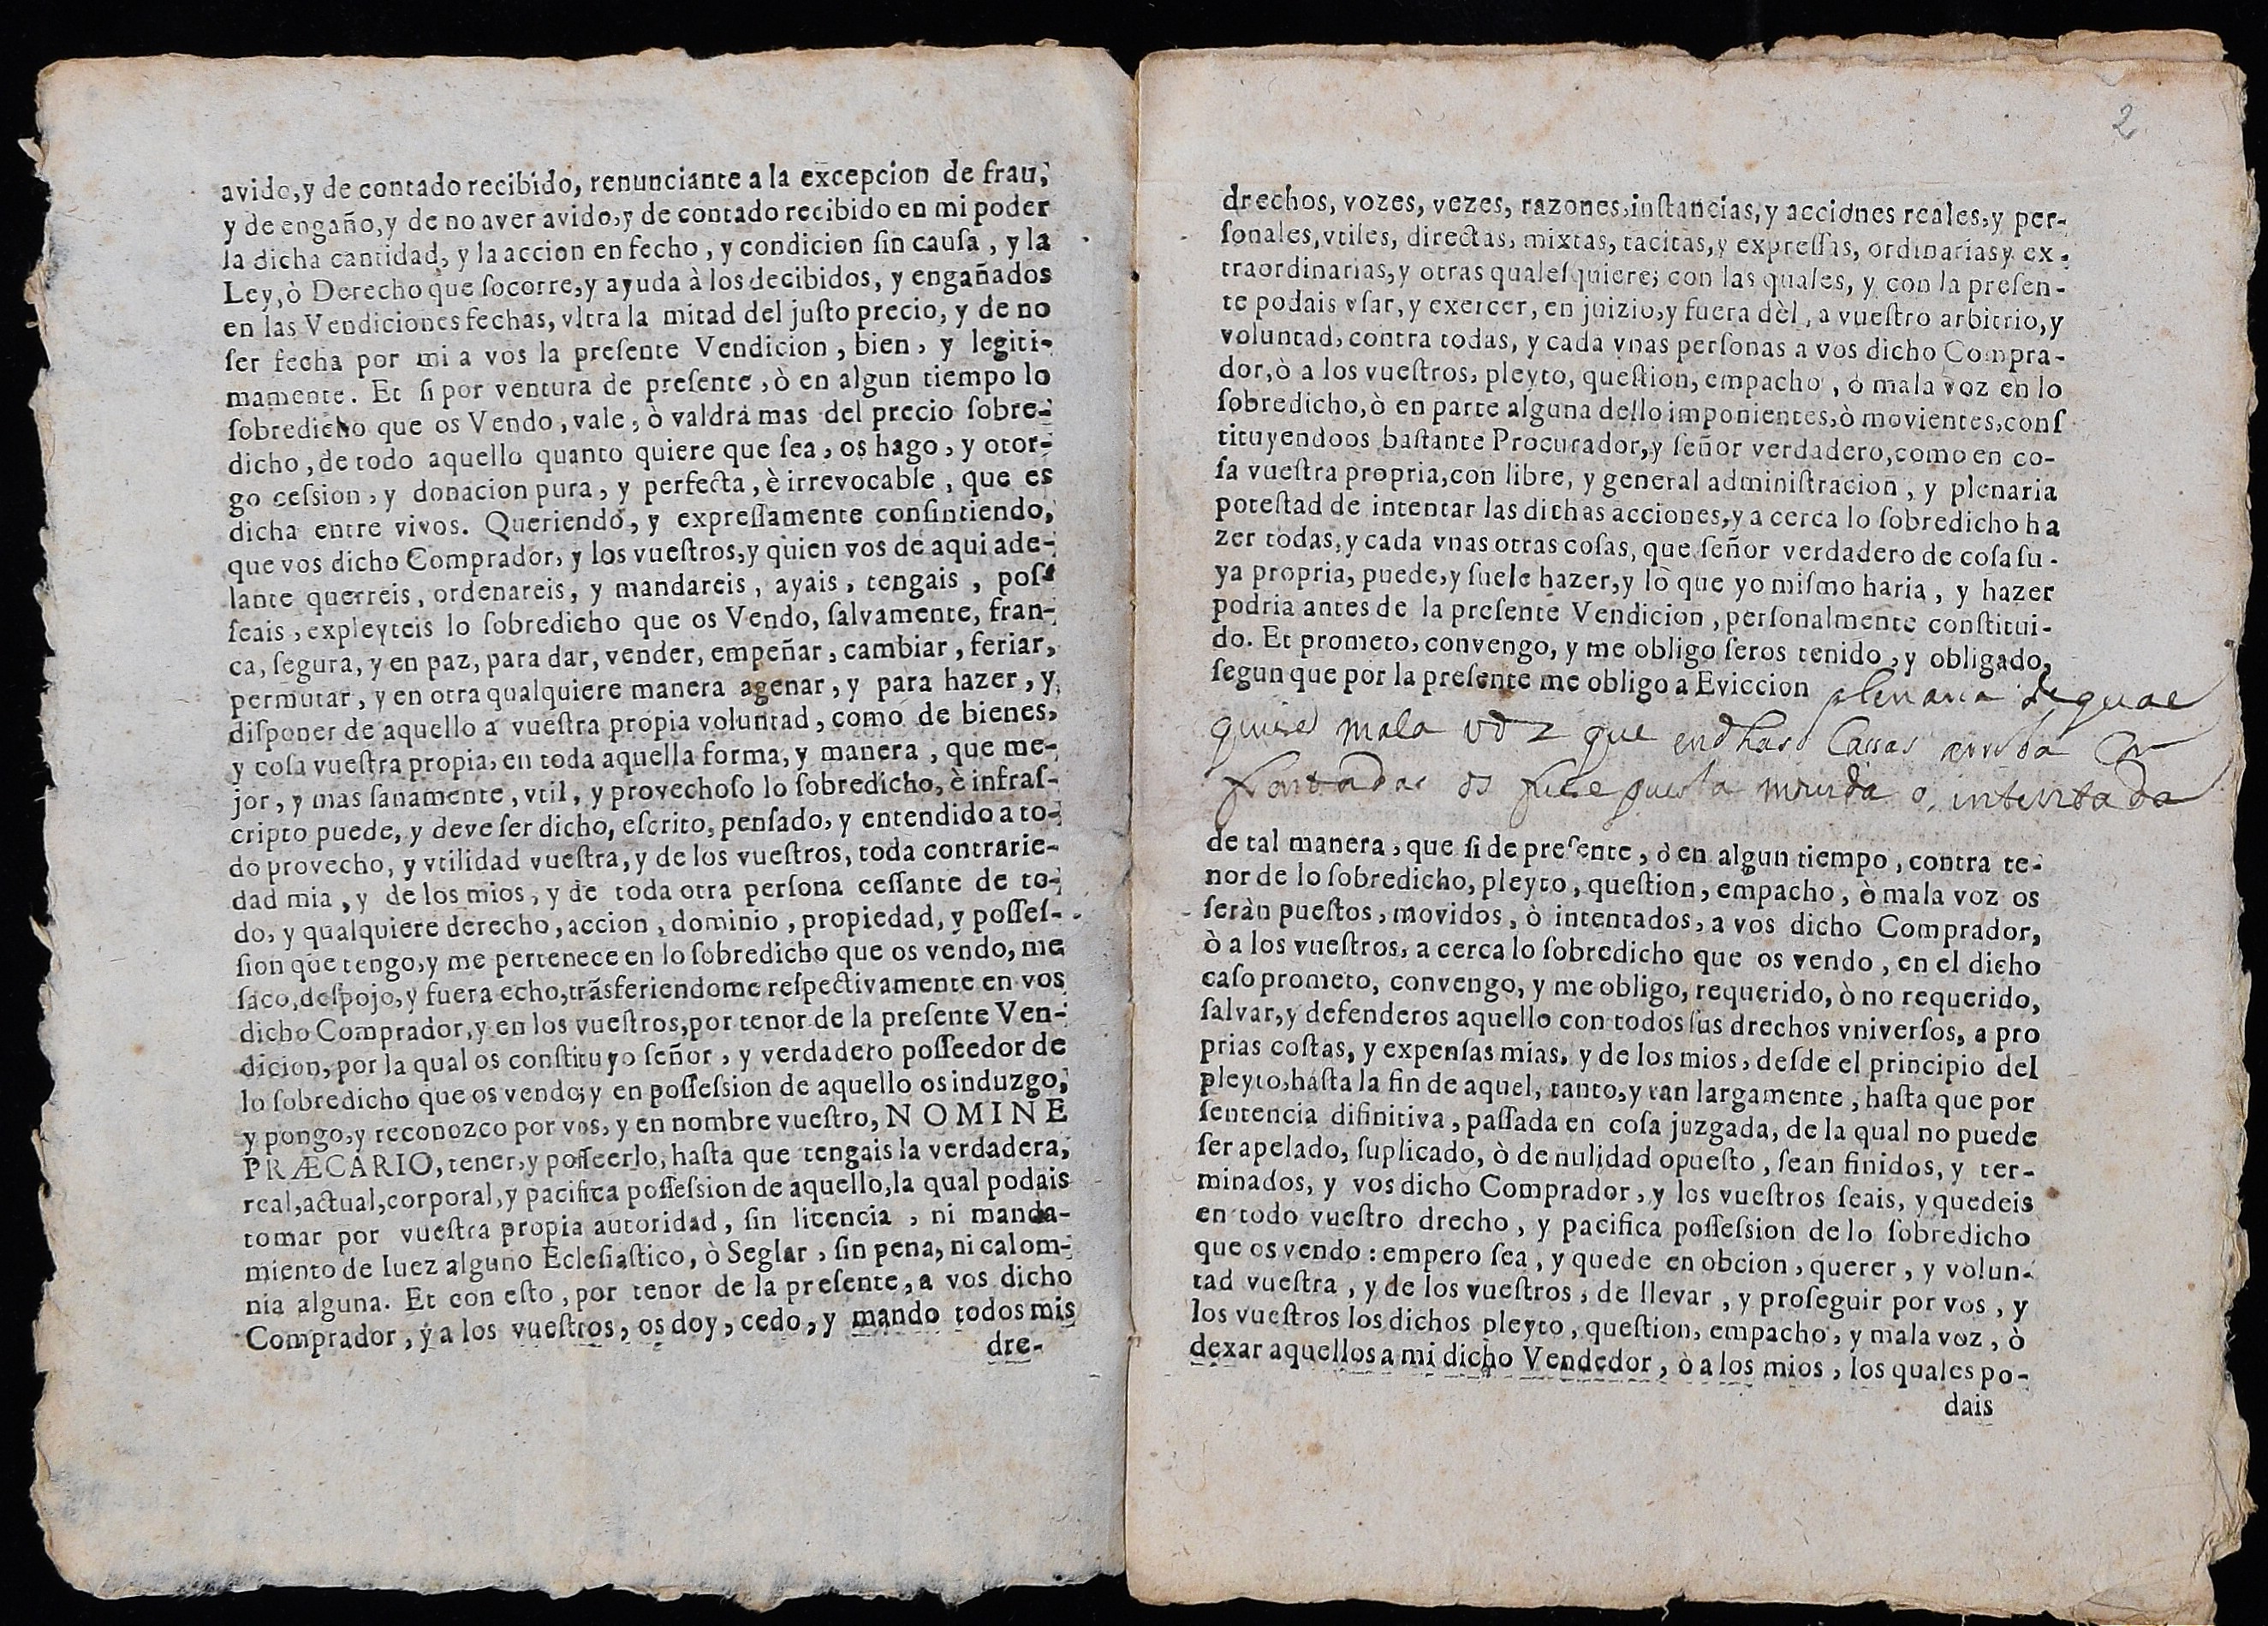 avido, y de contado recibido, renunciante a la excepcion de frau,
y de engaño, y de no aver avido, y de contado recibido en mi poder
la dicha cantidad, y la accion en fecho, y condicion sin causa, y la
Ley, ò Derecho que socorre, y ayuda à los decibidos, y engañados
en las Vendiciones fechas, vltra la mitad del justo precio, y de no
ser fecha por mi a vos la presente Vendicion, bien, y legiti-
mamente. Et si por ventura de presente, ò en algun tiempo lo
sobredicho que os Vendo, vale, ò valdrá mas del precio sobre-
dicho, de todo aquello quanto quiere que sea, os hago, y otor-
go cession, y donacion pura, y perfecta, è irrevocable, que es
dicha entre vivos. Queriendo, y expressamente consintiendo,
que vos dicho Comprador, y los vuestros, y quien vos de aqui ade-
lante querreis, ordenareis, y mandareis, ayais, tengais, pos-
seais, expleyteis lo sobredicho que os Vendo, salvamente, fran-
ca, segura, y en paz, para dar, vender, empeñar, cambiar, feriar,
permutar, y en otra qualquiere manera agenar, y para hazer, y
disponer de aquello a vuestra propia voluntad, como de bienes,
y cosa vuestra propia, en toda aquella forma, y manera, que me-
jor, y mas sanamente, vtil, y provechoso lo sobredicho, è infras-
cripto puede, y deve ser dicho, escrito, pensado, y entendido a to-
do provecho, y vtilidad vuestra, y de los vuestros, toda contrarie-
dad mia, y de los mios, y de toda otra persona cessante de to-
do, y qualquiere derecho, accion, dominio, propiedad, y posses-
sion que tengo, y me pertenece en lo sobredicho que os vendo, me
saco, despojo, y fuera echo, trãsferiendome respectivamente en vos
dicho Comprador, y en los vuestros, por tenor de la presente Ven-
dicion, por la qual os constituyo señor, y verdadero posseedor de
lo sobredicho que os vendo; y en possession de aquello os induzgo,
y pongo, y reconozco por vos, y en nombre vuestro, NOMINE
PRÆCARIO, tener, y posseerlo, hasta que tengais la verdadera,
real, actual, corporal, y pacifica possession de aquello, la qual podais
tomar por vuestra propia autoridad, sin licencia, ni manda-
miento de Iuez alguno Eclesiastico, ò Seglar, sin pena, ni calom-
nia alguna. Et con esto, por tenor de la presente, a vos dicho
Comprador, y a los vuestros, os doy, cedo, y mando todos mis
dre-
2
drechos, vozes, vezes, razones, instancias, y acciones reales, y per-
sonales, vtiles, directas, mixtas, tacitas, y expressas, ordinarias y ex-
traordinarias, y otras qualesquiere; con las quales, y con la presen-
te podais vsar, y exercer, en juizio, y fuera dèl, a vuestro arbitrio, y
voluntad, contra todas, y cada vnas personas a vos dicho Compra-
dor, ò a los vuestros, pleyto, question, empacho, ò mala voz en lo
sobredicho, ò en parte alguna dello imponientes, ò movientes, cons
tituyendoos bastante Procurador, y señor verdadero, como en co-
sa vuestra propria, con libre, y general administracion, y plenaria
potestad de intentar las dichas acciones, y a cerca lo sobredicho ha
zer todas, y cada vnas otras cosas, que señor verdadero de cosa su-
ya propria, puede, y suele hazer, y lo que yo mismo haria, y hazer
podria antes de la presente Vendicion, personalmente constitui-
do. Et prometo, convengo, y me obligo seros tenido, y obligado,
segun que por la presente me obligo a Eviccion plenaria de qual
quiere mala voz que en dhas Cassas arriba Con
frontadas os fuese puesta mouida o, intentada
de tal manera, que si de presente, ò en algun tiempo, contra te-
nor de lo sobredicho, pleyto, question, empacho, ò mala voz os
seràn puestos, movidos, ò intentados, a vos dicho Comprador,
ò a los vuestros, a cerca lo sobredicho que os vendo, en el dicho
caso prometo, convengo, y me obligo, requerido, ò no requerido,
salvar, y defenderos aquello con todos sus drechos vniversos, a pro
prias costas, y expensas mias, y de los mios, desde el principio del
pleyto, hasta la fin de aquel, tanto, y tan largamente, hasta que por
sentencia difinitiva, passada en cosa juzgada, de la qual no puede
ser apelado, suplicado, ò de nulidad opuesto, sean finidos, y ter-
minados, y vos dicho Comprador, y los vuestros seais, y quedeis
en todo vuestro drecho, y pacifica possession de lo sobredicho
que os vendo: empero sea, y quede en obcion, querer, y volun-
tad vuestra, y de los vuestros, de llevar, y proseguir por vos, y
los vuestros los dichos pleyto, question, empacho, y mala voz, ò
dexar aquellos a mi dicho Vendedor, ò a los mios, los quales po-
dais